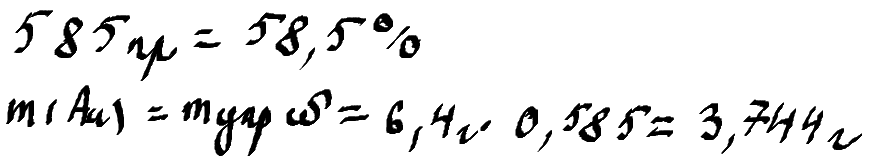 585пр = 58,5%
m(Au) = m укр · ω = 6,4г · 0,585 = 3,744 г